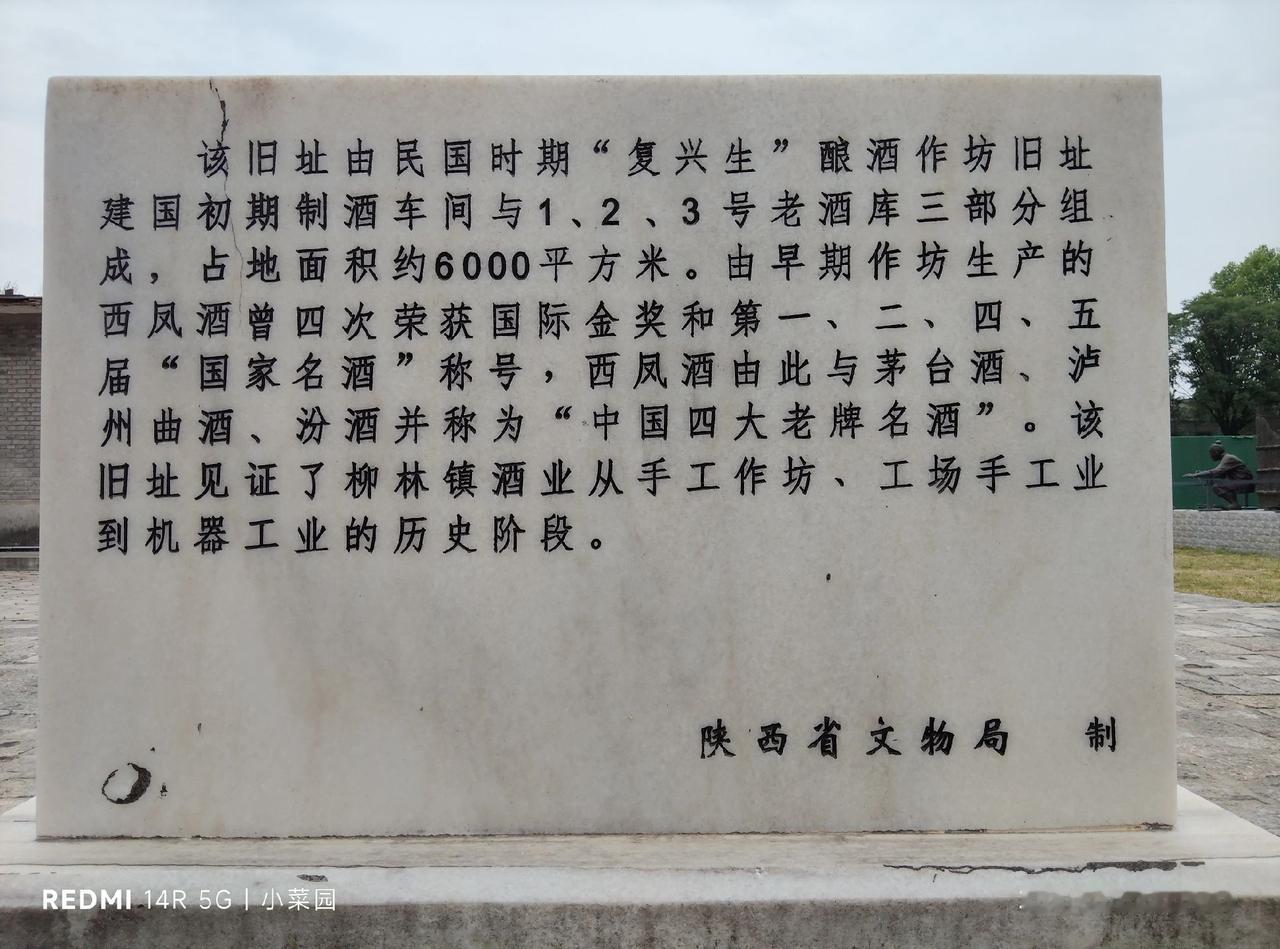 该旧址由民国时期“复兴生”酿酒作坊旧址
建国初期制酒车间与1、2、3号老酒库三部分组
成，占地面积约6000平方米。由早期作坊生产的
西凤酒曾四次荣获国际金奖和第一、二、四、五
届“国家名酒”称号，西凤酒由此与茅台酒、泸
州曲酒、汾酒并称为“中国四大老牌名酒”。该
旧址见证了柳林镇酒业从手工作坊、工场手工业
到机器工业的历史阶段。
陕西省文物局 制
REDMI 14R 5G | 小菜园